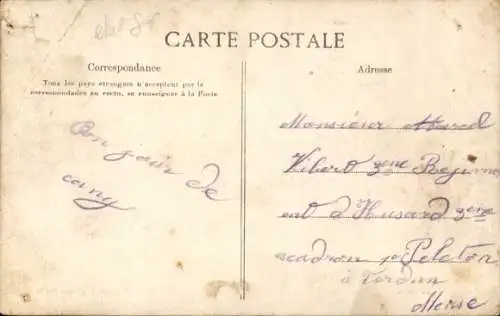 CARTE POSTALE
Correspondance
Tous les pays étrangers n'acceptent pas la
correspondance au recto, se renseigner à la Poste
Bon jour de
cany
Adresse
Monsieur
Vibert 2eme Regime
ent d'Husard 2eme
escadron Peleton
à Verdun
Meuse